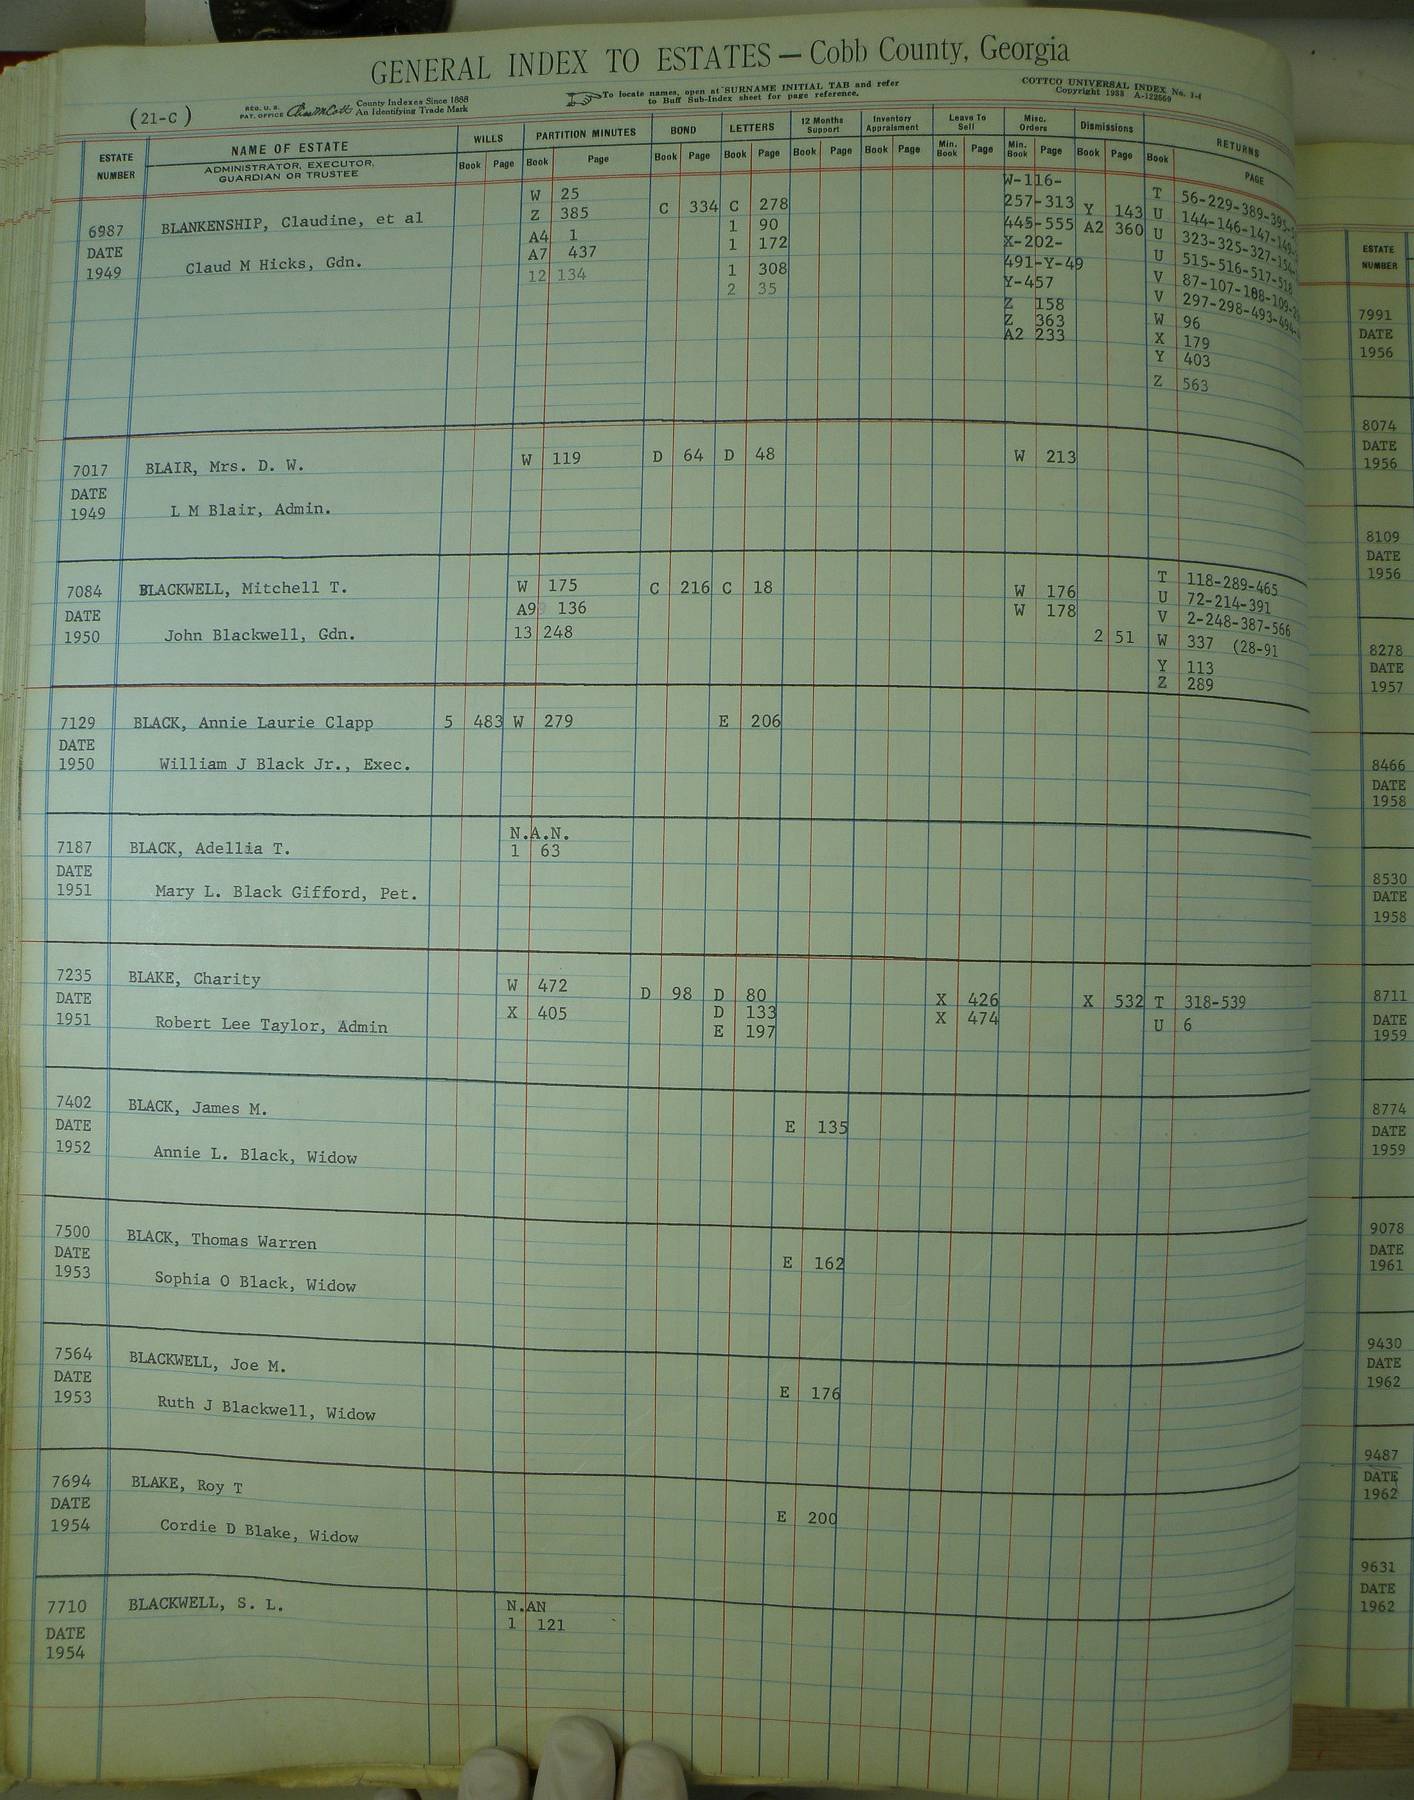 GENERAL INDEX TO ESTATES — Cobb County, Georgia
(21-C)
REG. U. S. PAT. OFFICE County Indexes Since 1888 An Identifying Trade Mark
To locate names, open at SURNAME INITIAL TAB and refer to Buff Sub-Index sheet for page reference.
COTTCO UNIVERSAL INDEX No. 1-I
Copyright 1933 A-122669
ESTATE NUMBER NAME OF ESTATE WILLS PARTITION MINUTES BOND LETTERS 12 Months Support Inventory Appraisment Leave To Sell Misc. Orders Dismissions RETURNS
ADMINISTRATOR, EXECUTOR, GUARDIAN OR TRUSTEE Book Page Book Page Book Page Book Page Book Page Book Page Min. Book Page Min. Book Page Book Page Book PAGE
W-116-
W 25 257-313 T 56-229-389-395-
6987 BLANKENSHIP, Claudine, et al Z 385 C 334 C 278 445-555 Y 143 U 144-146-147-149-
A4 1 1 90 X-202- A2 360 U 323-325-327-154-
DATE A7 437 1 172 491-Y-49 U 515-516-517-518
1949 Claud M Hicks, Gdn. 12 134 1 308 Y-457 V 87-107-108-109-
2 35 Z 158 V 297-298-493-494-
Z 363 W 96
A2 233 X 179
Y 403
Z 563
7017 BLAIR, Mrs. D. W. W 119 D 64 D 48 W 213
DATE
1949 L M Blair, Admin.
7084 BLACKWELL, Mitchell T. W 175 C 216 C 18 W 176 T 118-289-465
DATE A9 136 W 178 U 72-214-391
1950 John Blackwell, Gdn. 13 248 2 51 V 2-248-387-566
W 337 (28-91
Y 113
Z 289
7129 BLACK, Annie Laurie Clapp 5 483 W 279 E 206
DATE
1950 William J Black Jr., Exec.
N.A.N.
7187 BLACK, Adellia T. 1 63
DATE
1951 Mary L. Black Gifford, Pet.
7235 BLAKE, Charity W 472 D 98 D 80 X 426 X 532 T 318-539
DATE X 405 D 133 X 474 U 6
1951 Robert Lee Taylor, Admin E 197
7402 BLACK, James M.
DATE E 135
1952 Annie L. Black, Widow
7500 BLACK, Thomas Warren
DATE E 162
1953 Sophia O Black, Widow
7564 BLACKWELL, Joe M.
DATE E 176
1953 Ruth J Blackwell, Widow
7694 BLAKE, Roy T
DATE E 200
1954 Cordie D Blake, Widow
7710 BLACKWELL, S. L. N.AN
DATE 1 121
1954
ESTATE NUMBER
7991
DATE
1956
8074
DATE
1956
8109
DATE
1956
8278
DATE
1957
8466
DATE
1958
8530
DATE
1958
8711
DATE
1959
8774
DATE
1959
9078
DATE
1961
9430
DATE
1962
9487
DATE
1962
9631
DATE
1962